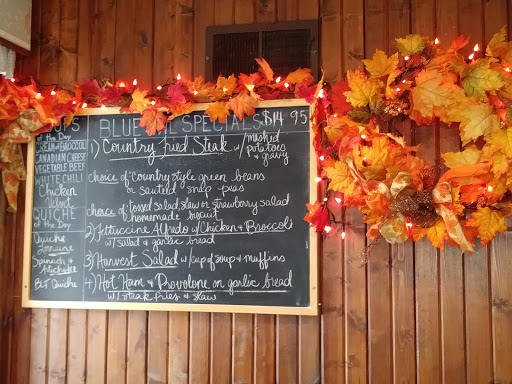 SOUPS
of the Day
CREAM of BROCCOLI
CANADIAN CHEESE
VEGETABLE BEEF
WHITE CHILI
Chicken
QUICHE
of the Day
Quiche
Lorraine
Spinach &
BLT Quiche
BLUE SPECIALS $14.95
1) Country Fried Steak w/ mashed
potatoes
& gravy
choice of country style green beans
or sautéed snap peas
choice of tossed salad, slaw or strawberry salad
homemade biscuit
2) Fettuccine Alfredo w/ Chicken & Broccoli
w/ salad & garlic bread
3) Harvest Salad w/ cup of soup & muffins
4) Hot Ham & Provolone on garlic bread
w/ steak fries & slaw